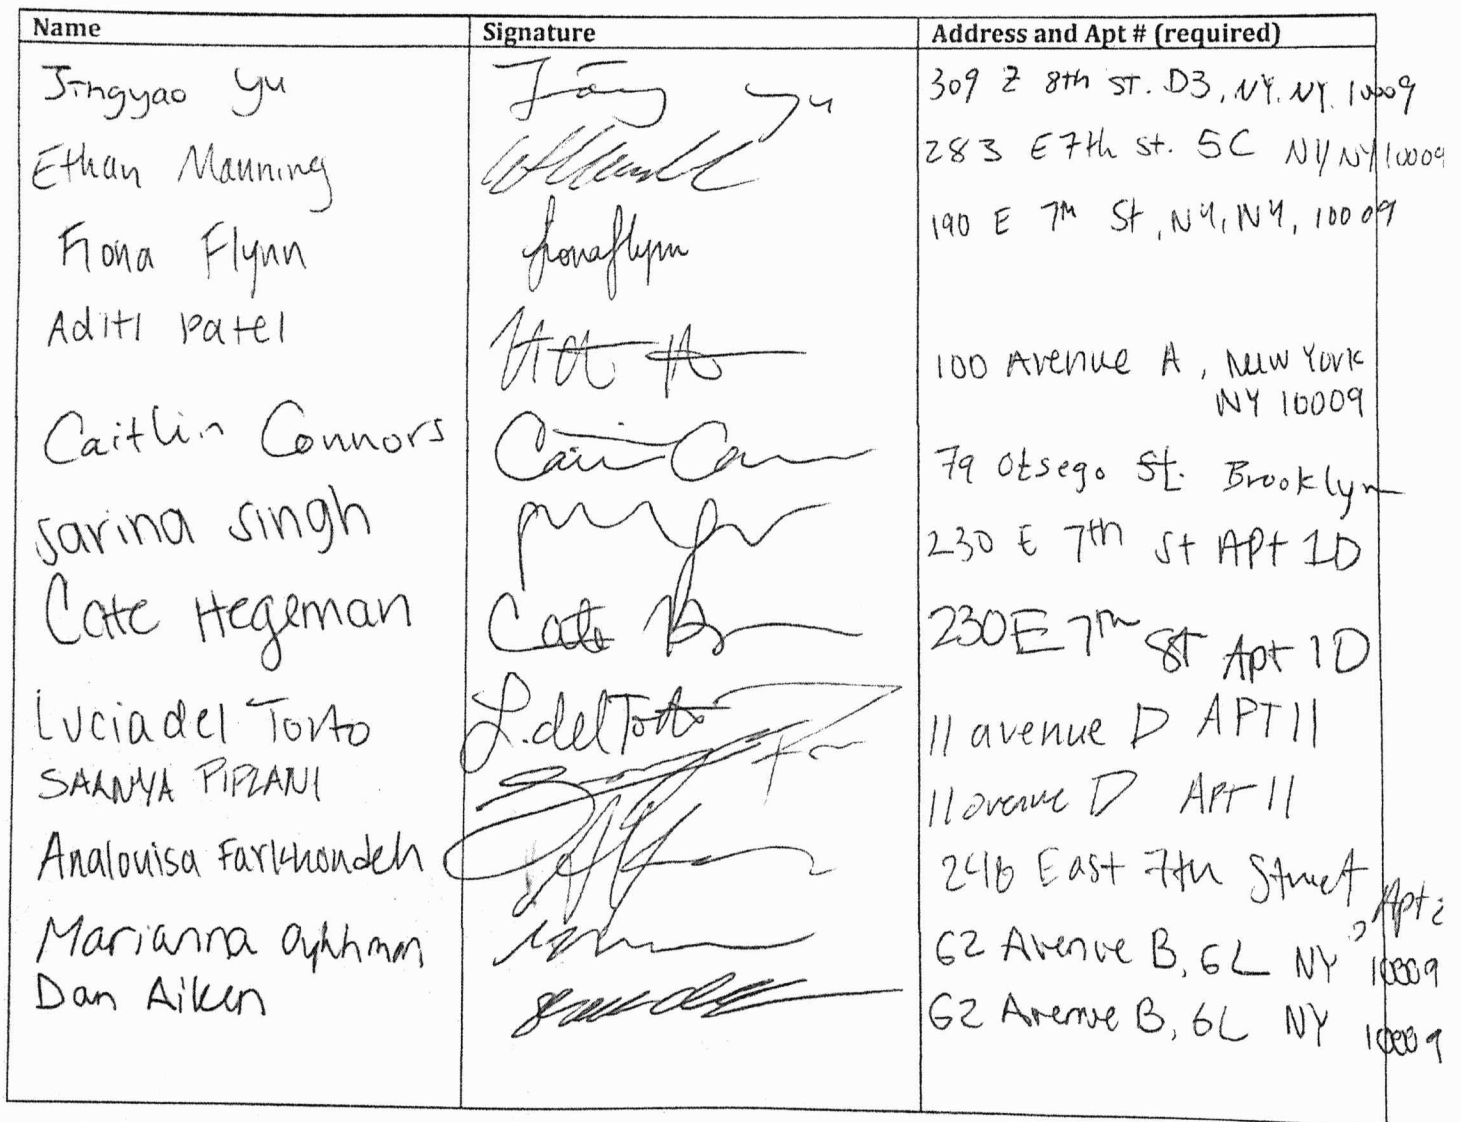 Name Signature Address and Apt # (required)
Jingyao Yu 309 E 8th St. D3, NY. NY. 10009
Ethan Manning 283 E 7th St. 5C NY NY 10009
Fiona Flynn fionaflynn 190 E 7th St, NY, NY, 10009
Aditi Patel
100 Avenue A, New York
NY 10009
Caitlin Connors 79 Otsego St. Brooklyn
Sarina Singh 230 E 7th St Apt 1D
Cate Hegeman Cate 230 E 7th St Apt 1D
Lucia del Torto L. del Torto 11 avenue D APT 11
SAANYA PIPLANI 11 avenue D APT 11
Analouisa Farkhondeh 246 East 7th Street, Apt 2
Marianna 62 Avenue B, 6L NY 10009
Dan Aiken 62 Avenue B, 6L NY 10009